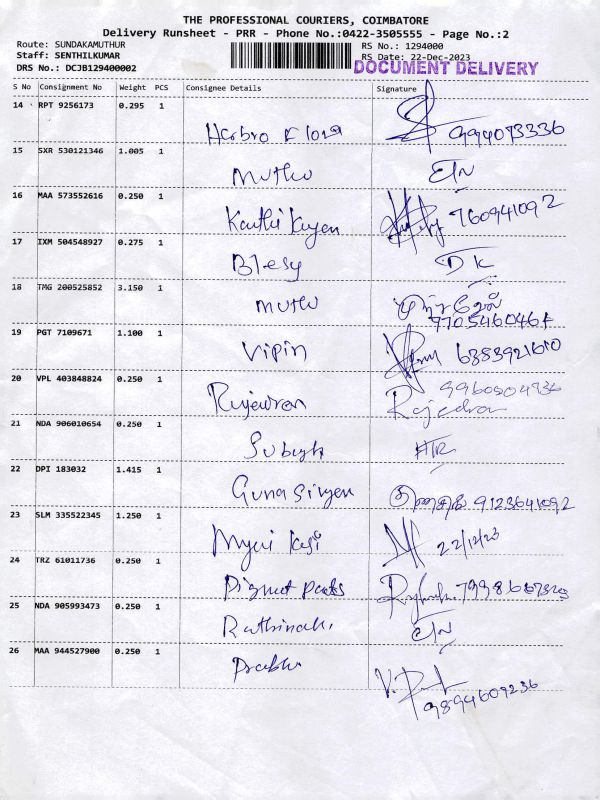 THE PROFESSIONAL COURIERS, COIMBATORE
Delivery Runsheet - PRR - Phone No.:0422-3505555 - Page No.:2
Route: SUNDAKAMUTHUR RS No.: 1294000
Staff: SENTHILKUMAR RS Date: 22-Dec-2023
DRS No.: DCJB129400002 DOCUMENT DELIVERY
S No Consignment No Weight PCS Consignee Details Signature
14 RPT 9256173 0.295 1
Herbro Flora
15 SXR 530121346 1.005 1
Muthu
16 MAA 573552616 0.250 1
760941092
17 IXM 504548927 0.275 1
Blesy DK
18 TMG 200525852 3.150 1
Muthu
19 PGT 7109671 1.100 1
Vipin 6383921610
20 VPL 403848824 0.250 1
21 NDA 906010654 0.250 1
22 DPI 183032 1.415 1
9123641092
23 SLM 335522345 1.250 1
22/12/23
24 TRZ 61011736 0.250 1
25 NDA 905993473 0.250 1
26 MAA 944527900 0.250 1
Prabhu
9894609236